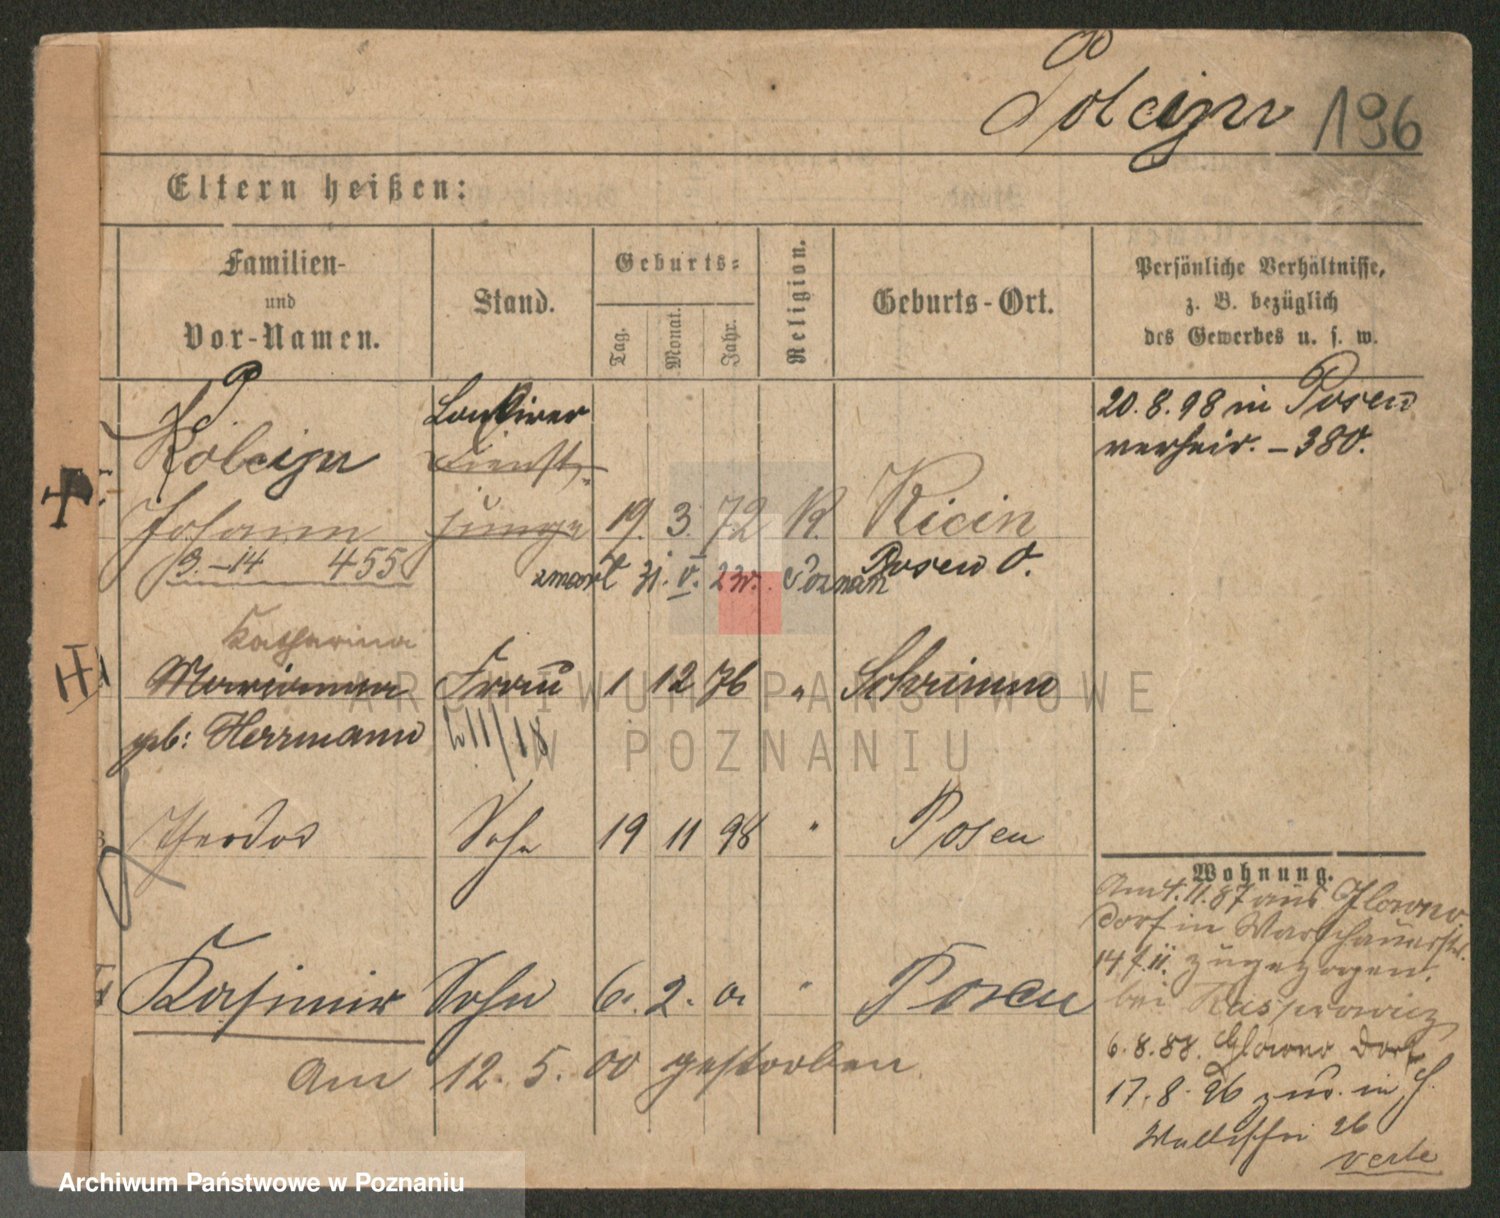 Polcyn 196
Eltern heißen:
Familien-
und
Vor-Namen.
Stand.
Geburts-
Tag.
Monat.
Jahr.
Religion.
Geburts-Ort.
Persönliche Verhältnisse,
z. B. bezüglich
des Gewerbes u. s. w.
20. 8. 98 in Posen
verheir. – 380.
Polcyn
Dienst
Johann junge 19. 3. 72 K. Kicin
3.–14 455 Posen O.
zmarł 31. V. 23 r. Poznań
Katharina
Marianna Frau 1 12 76 " Schrimm
geb: Herrmann
Theodor Sohn 19 11 98 " Posen
Kasimir Sohn 6. 2. 0. " Posen
Am 12. 5. 00 gestorben
Wohnung.
Am 4. 11. 87 aus Glowno
dorf in Warschauerstr.
14 zugezogen.
bei Kasprowicz
6. 8. 88. Glowno Dorf
17. 8. 96 zur. in
Wallischei 26
verte
ARCHIWUM PAŃSTWOWE
W POZNANIU
Archiwum Państwowe w Poznaniu